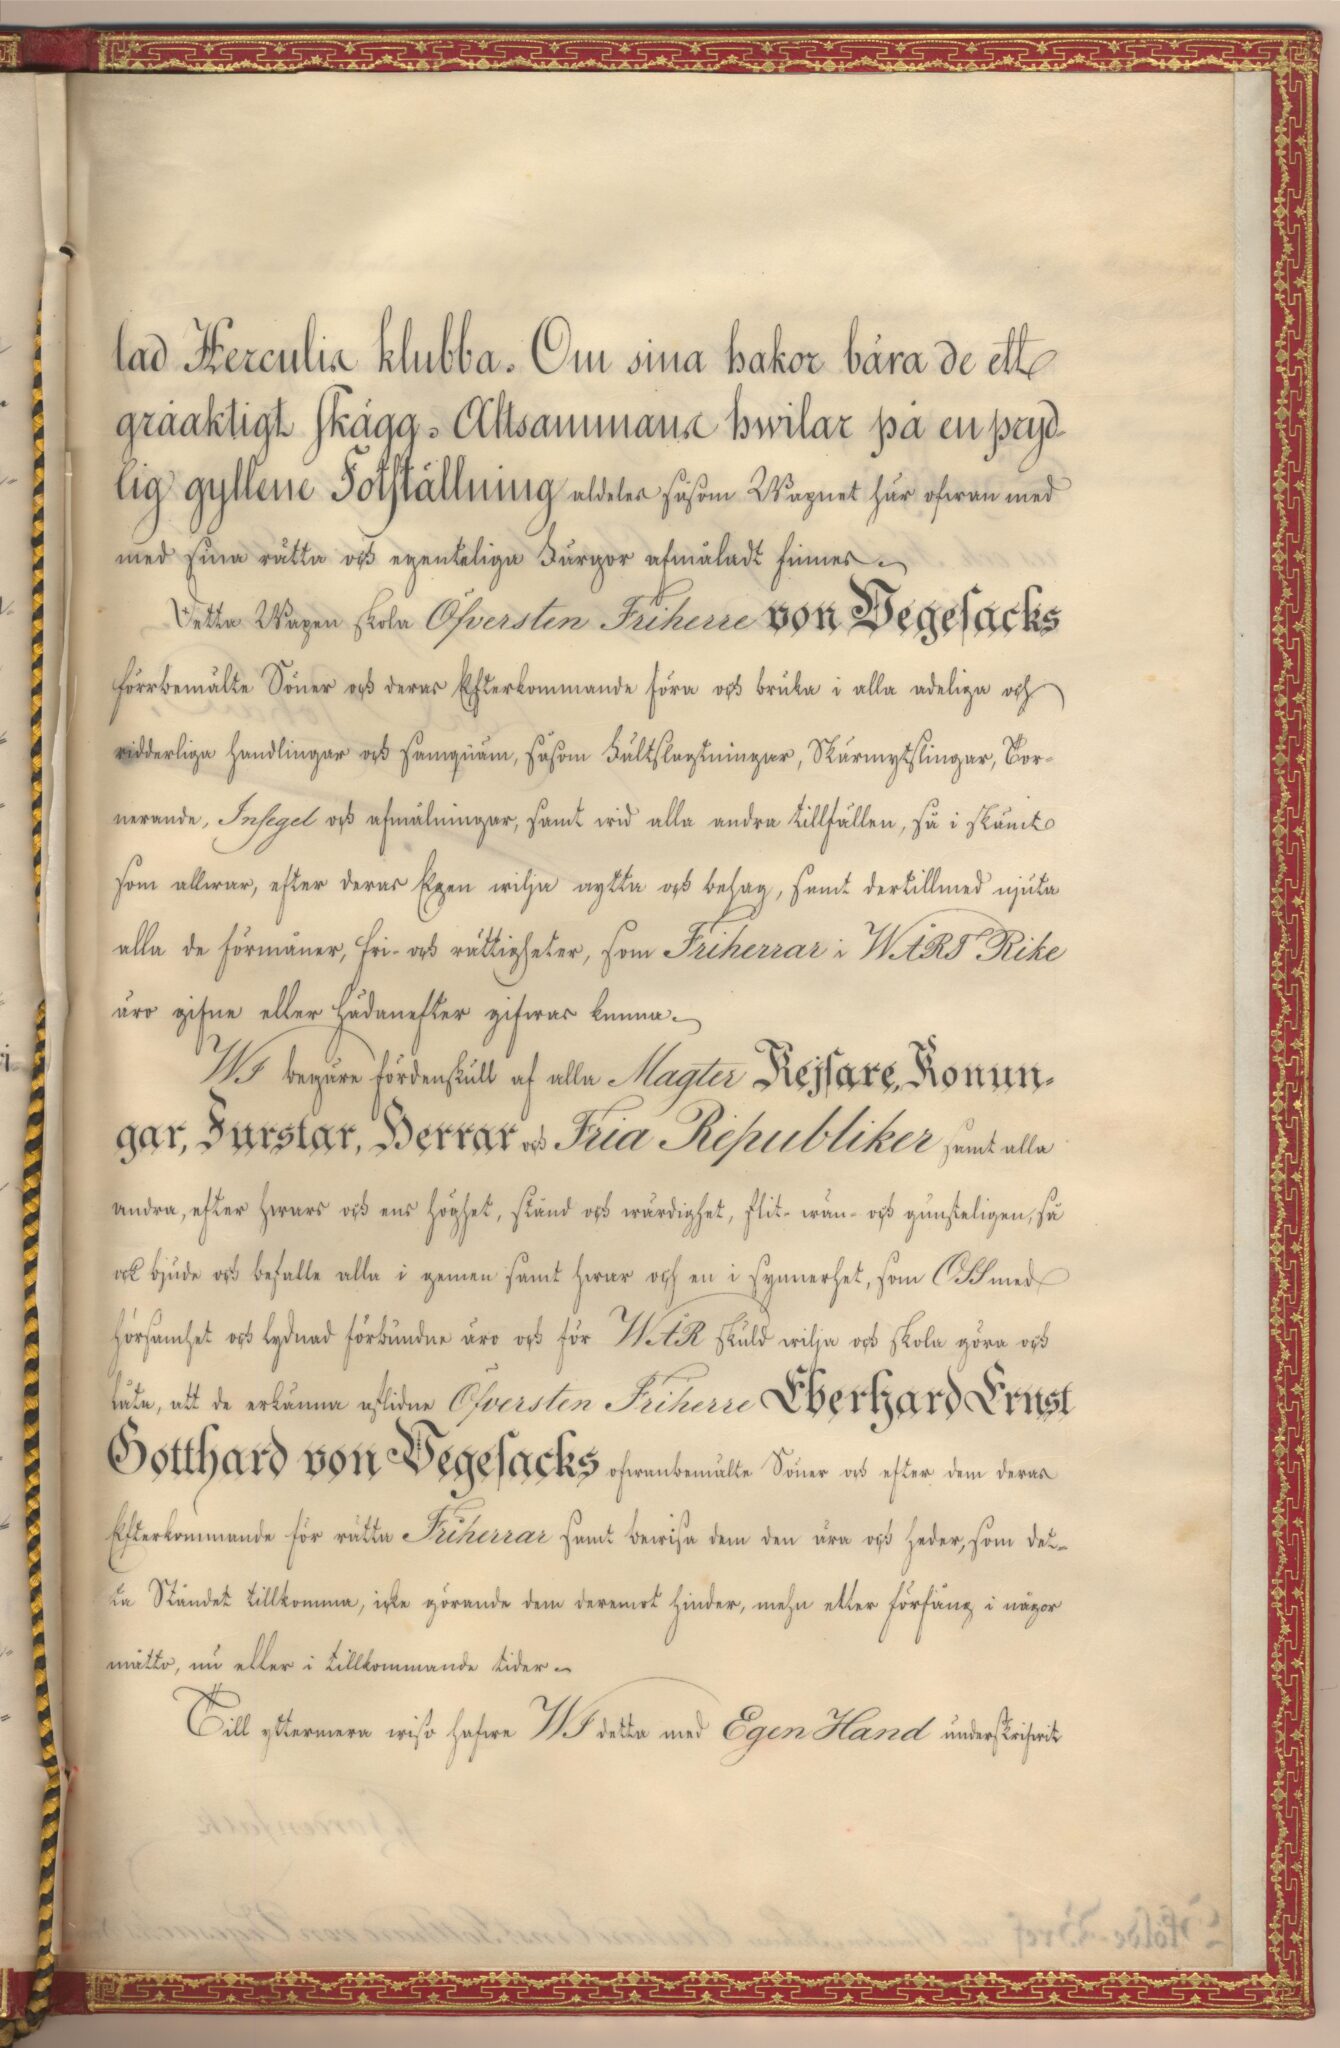 lad Herculis klubba. Om sina hakor bära de ett
gråaktigt skägg. Altsammans hwilar på en pryd-
lig gyllene Fotställning aldeles såsom Wapnet här ofwan med
med sina rätta och egenteliga Färgor afmåladt finnes.
Detta Wapen skola Öfversten Friherre von Vegesacks
förrbemälte Söner och deras Efterkommande föra och bruka i alla adeliga och
ridderliga handlingar och samqwäm, såsom Fältslagtningar, Skärmytslingar, Tor-
nerande, Insegel och afmålningar, samt wid alla andra tillfällen, så i skämt
som allwar, efter deras Egen wilja nytta och behag, samt dertillmed njuta
alla de förmåner, fri- och rättigheter, som Friherrar i WÅRT Rike
äro gifne eller hädanefter gifwas kunna.
WI begäre fördenskull af alla Magter Kejsare, Konun-
gar, Furstar, Herrar och Fria Republiker samt alla
andra, efter hwars och ens höghet, stånd och wärdighet, flit- wän- och gunsteligen, så
ock bjude och befalle alla i gemen samt hwar och en i synnerhet, som OSS med
hörsamhet och lydnad förbundne äro och för WÅR skuld wilja och skola göra och
låta, att de erkänna aflidne Öfversten Friherre Eberhard Ernst
Gotthard von Vegesacks ofwanbemälte Söner och efter dem deras
Efterkommande för rätta Friherrar samt bewisa dem den ära och heder, som det-
ta Ståndet tillkomma, icke görande dem deremot hinder, mehn eller förfång i någor
måtto, nu eller i tillkommande tider.
Till yttermera wiso hafwe WI detta med Egen Hand underskrifwit